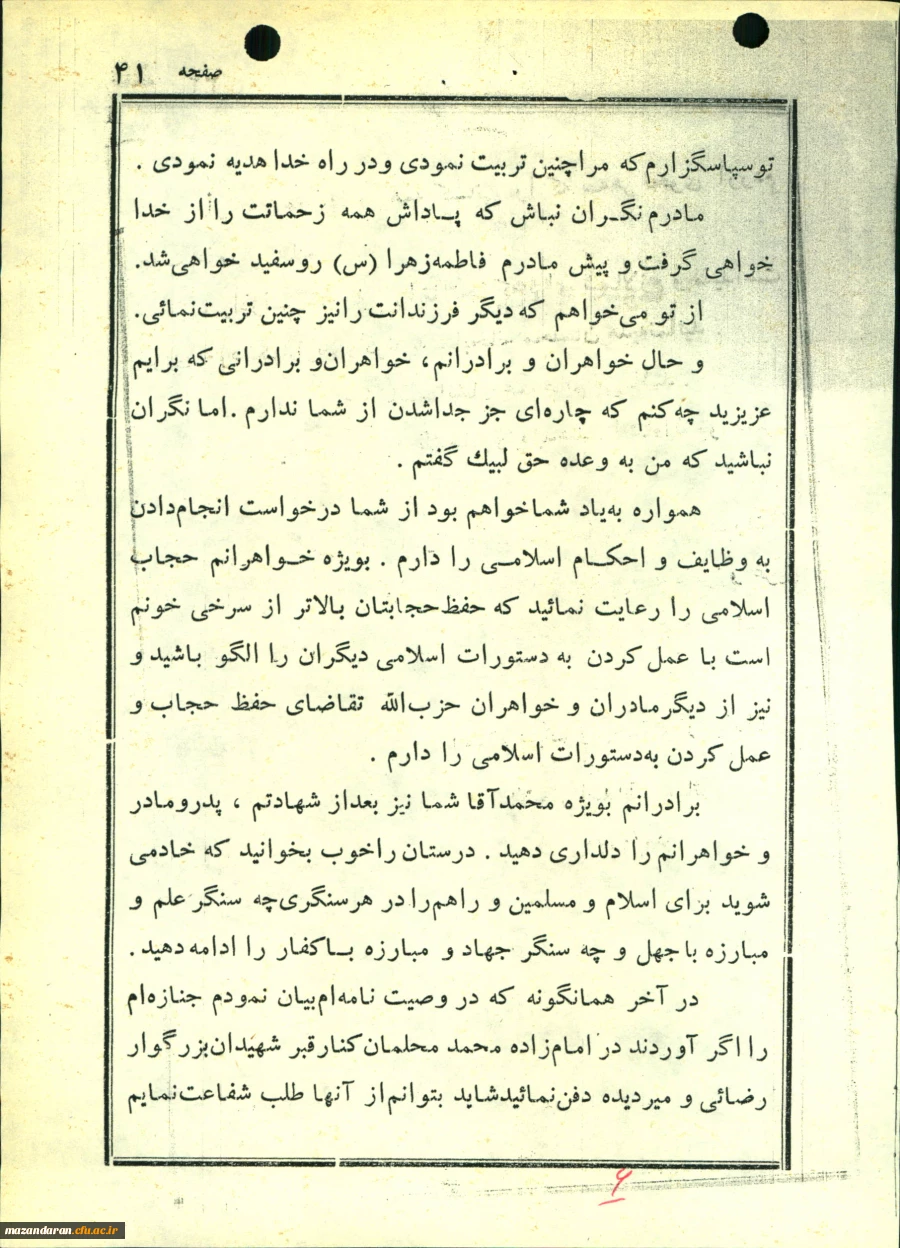 صفحه ۴۱
تو سپاسگزارم که مرا چنین تربیت نمودی و در راه خدا هدیه نمودی .
مادرم نگـران نباش که پـاداش همه زحماتت را از خدا
خواهی گرفت و پیش مادرم فاطمه‌زهرا (س) روسفید خواهی‌شد.
از تو می‌خواهم که دیگر فرزندانت را نیز چنین تربیت‌نمائی.
و حال خواهران و برادرانم، خواهران‌و برادرانی که برایم
عزیزید چه‌کنم که چاره‌ای جز جداشدن از شما ندارم .اما نگران
نباشید که من به وعده حق لبیك گفتم .
همواره به‌یاد شما خواهم بود از شما درخواست انجام‌دادن
به وظایف و احکـام اسلامـی را دارم . بویژه خـواهرانم حجاب
اسلامی را رعایت نمائید که حفظ‌حجابتان بالاتر از سرخی خونم
است با عمل کردن به دستورات اسلامی دیگران را الگو باشید و
نیز از دیگر مادران و خواهران حزب‌الله تقاضای حفظ حجاب و
عمل کردن به‌دستورات اسلامی را دارم .
برادرانم بویژه محمدآقا شما نیز بعداز شهادتم ، پدرومادر
و خواهرانم را دلداری دهید . درستان راخوب بخوانید که خادمی
شوید برای اسلام و مسلمین و راهم‌را در هرسنگری‌چه سنگر علم و
مبارزه با جهل و چه سنگر جهاد و مبارزه بـا کفار را ادامه دهید.
در آخر همانگونه که در وصیت نامه‌ام‌بیان نمودم جنازه‌ام
را اگر آوردند در امام‌زاده محمد محلمان‌کنارقبر شهیدان‌بزرگوار
رضائی و میردیده دفن‌نمائیدشاید بتوانم‌از آنها طلب شفاعت‌نمایم
۶
mazandaran.cfu.ac.ir